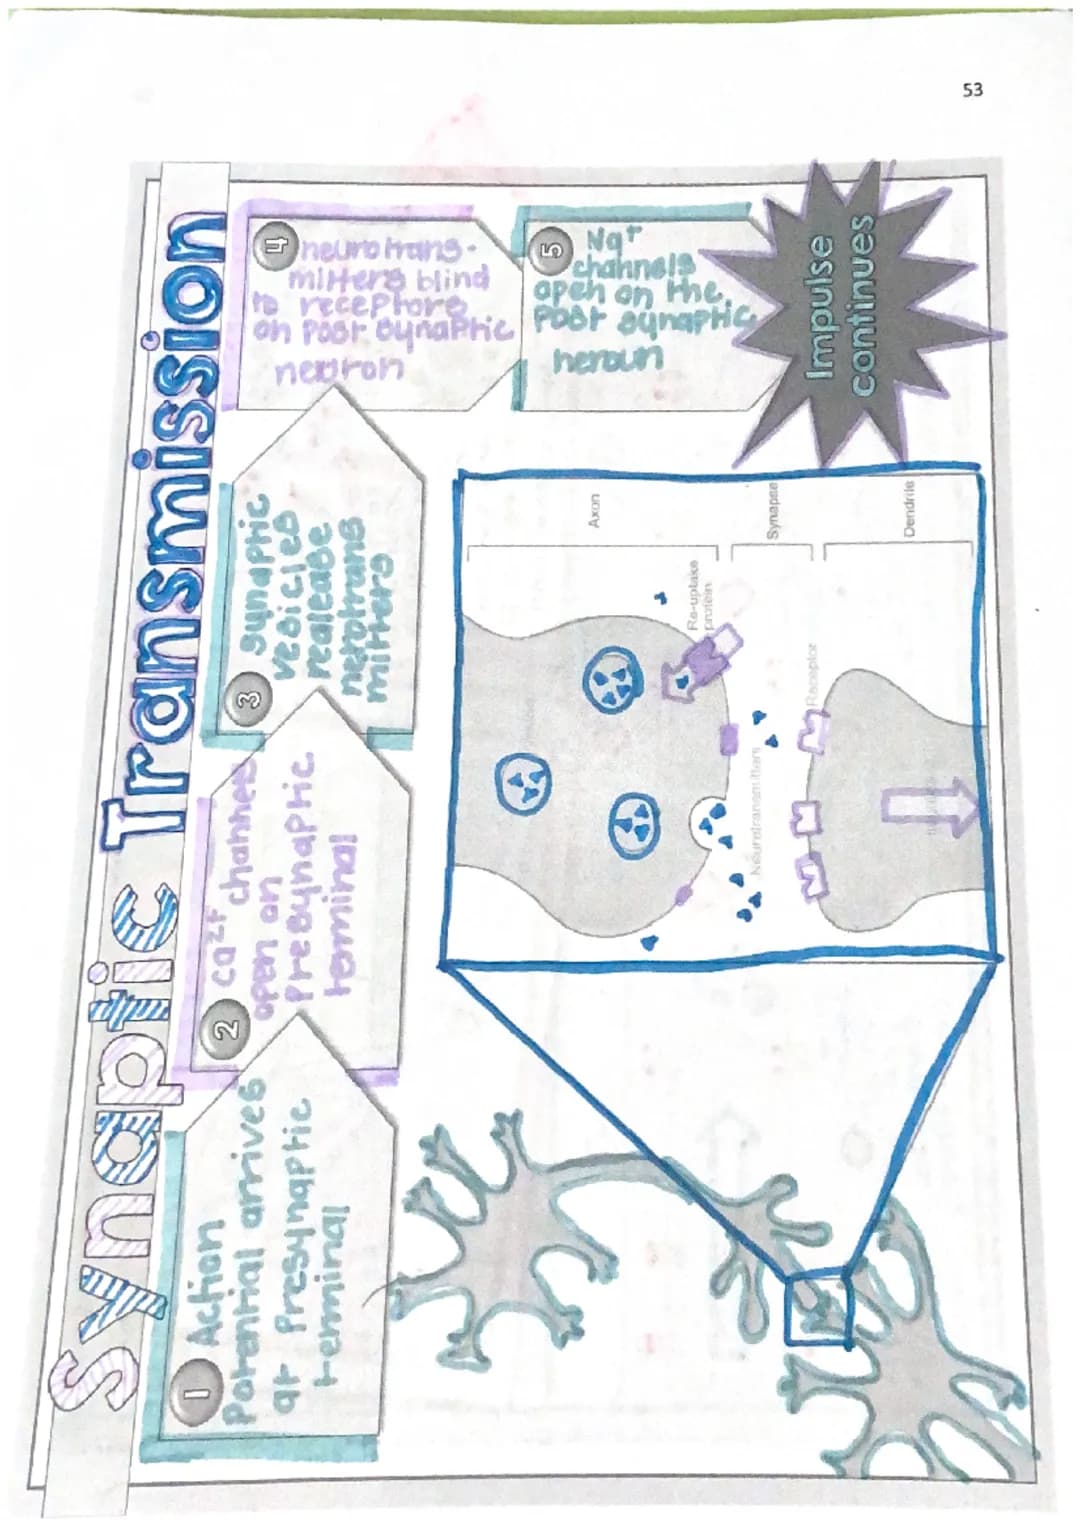 53
Synaptic Transmission
1 Action
Potential arrives
at Presynaptic
terminal
2 Ca2+ channels
open on
Presynaptic
terminal
3 synaptic
vesicles
realease
nerotrans
mitters
4 neurotrans-
mitters blind
to receptors
on post synaptic
neuron
5 Na+
channels
open on the
post synaptic
neroun
Impulse
continues
Axon
Re-uptake
protein
Synapse
Neurotransmitters
Receptor
Dendrite